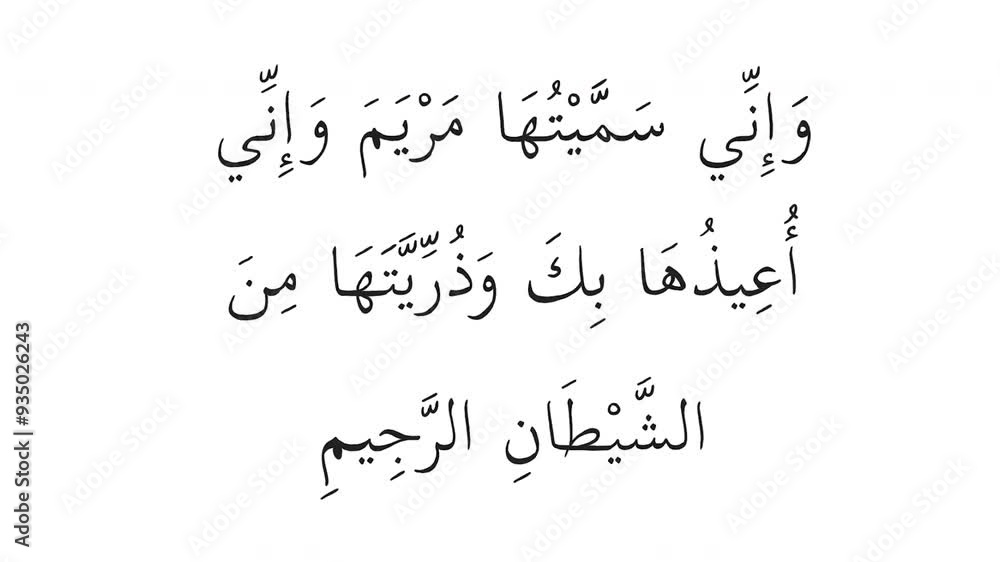 وَإِنِّي سَمَّيْتُهَا مَرْيَمَ وَإِنِّي
أُعِيذُهَا بِكَ وَذُرِّيَّتَهَا مِنَ
الشَّيْطَانِ الرَّجِيمِ
Adobe Stock | #935026243